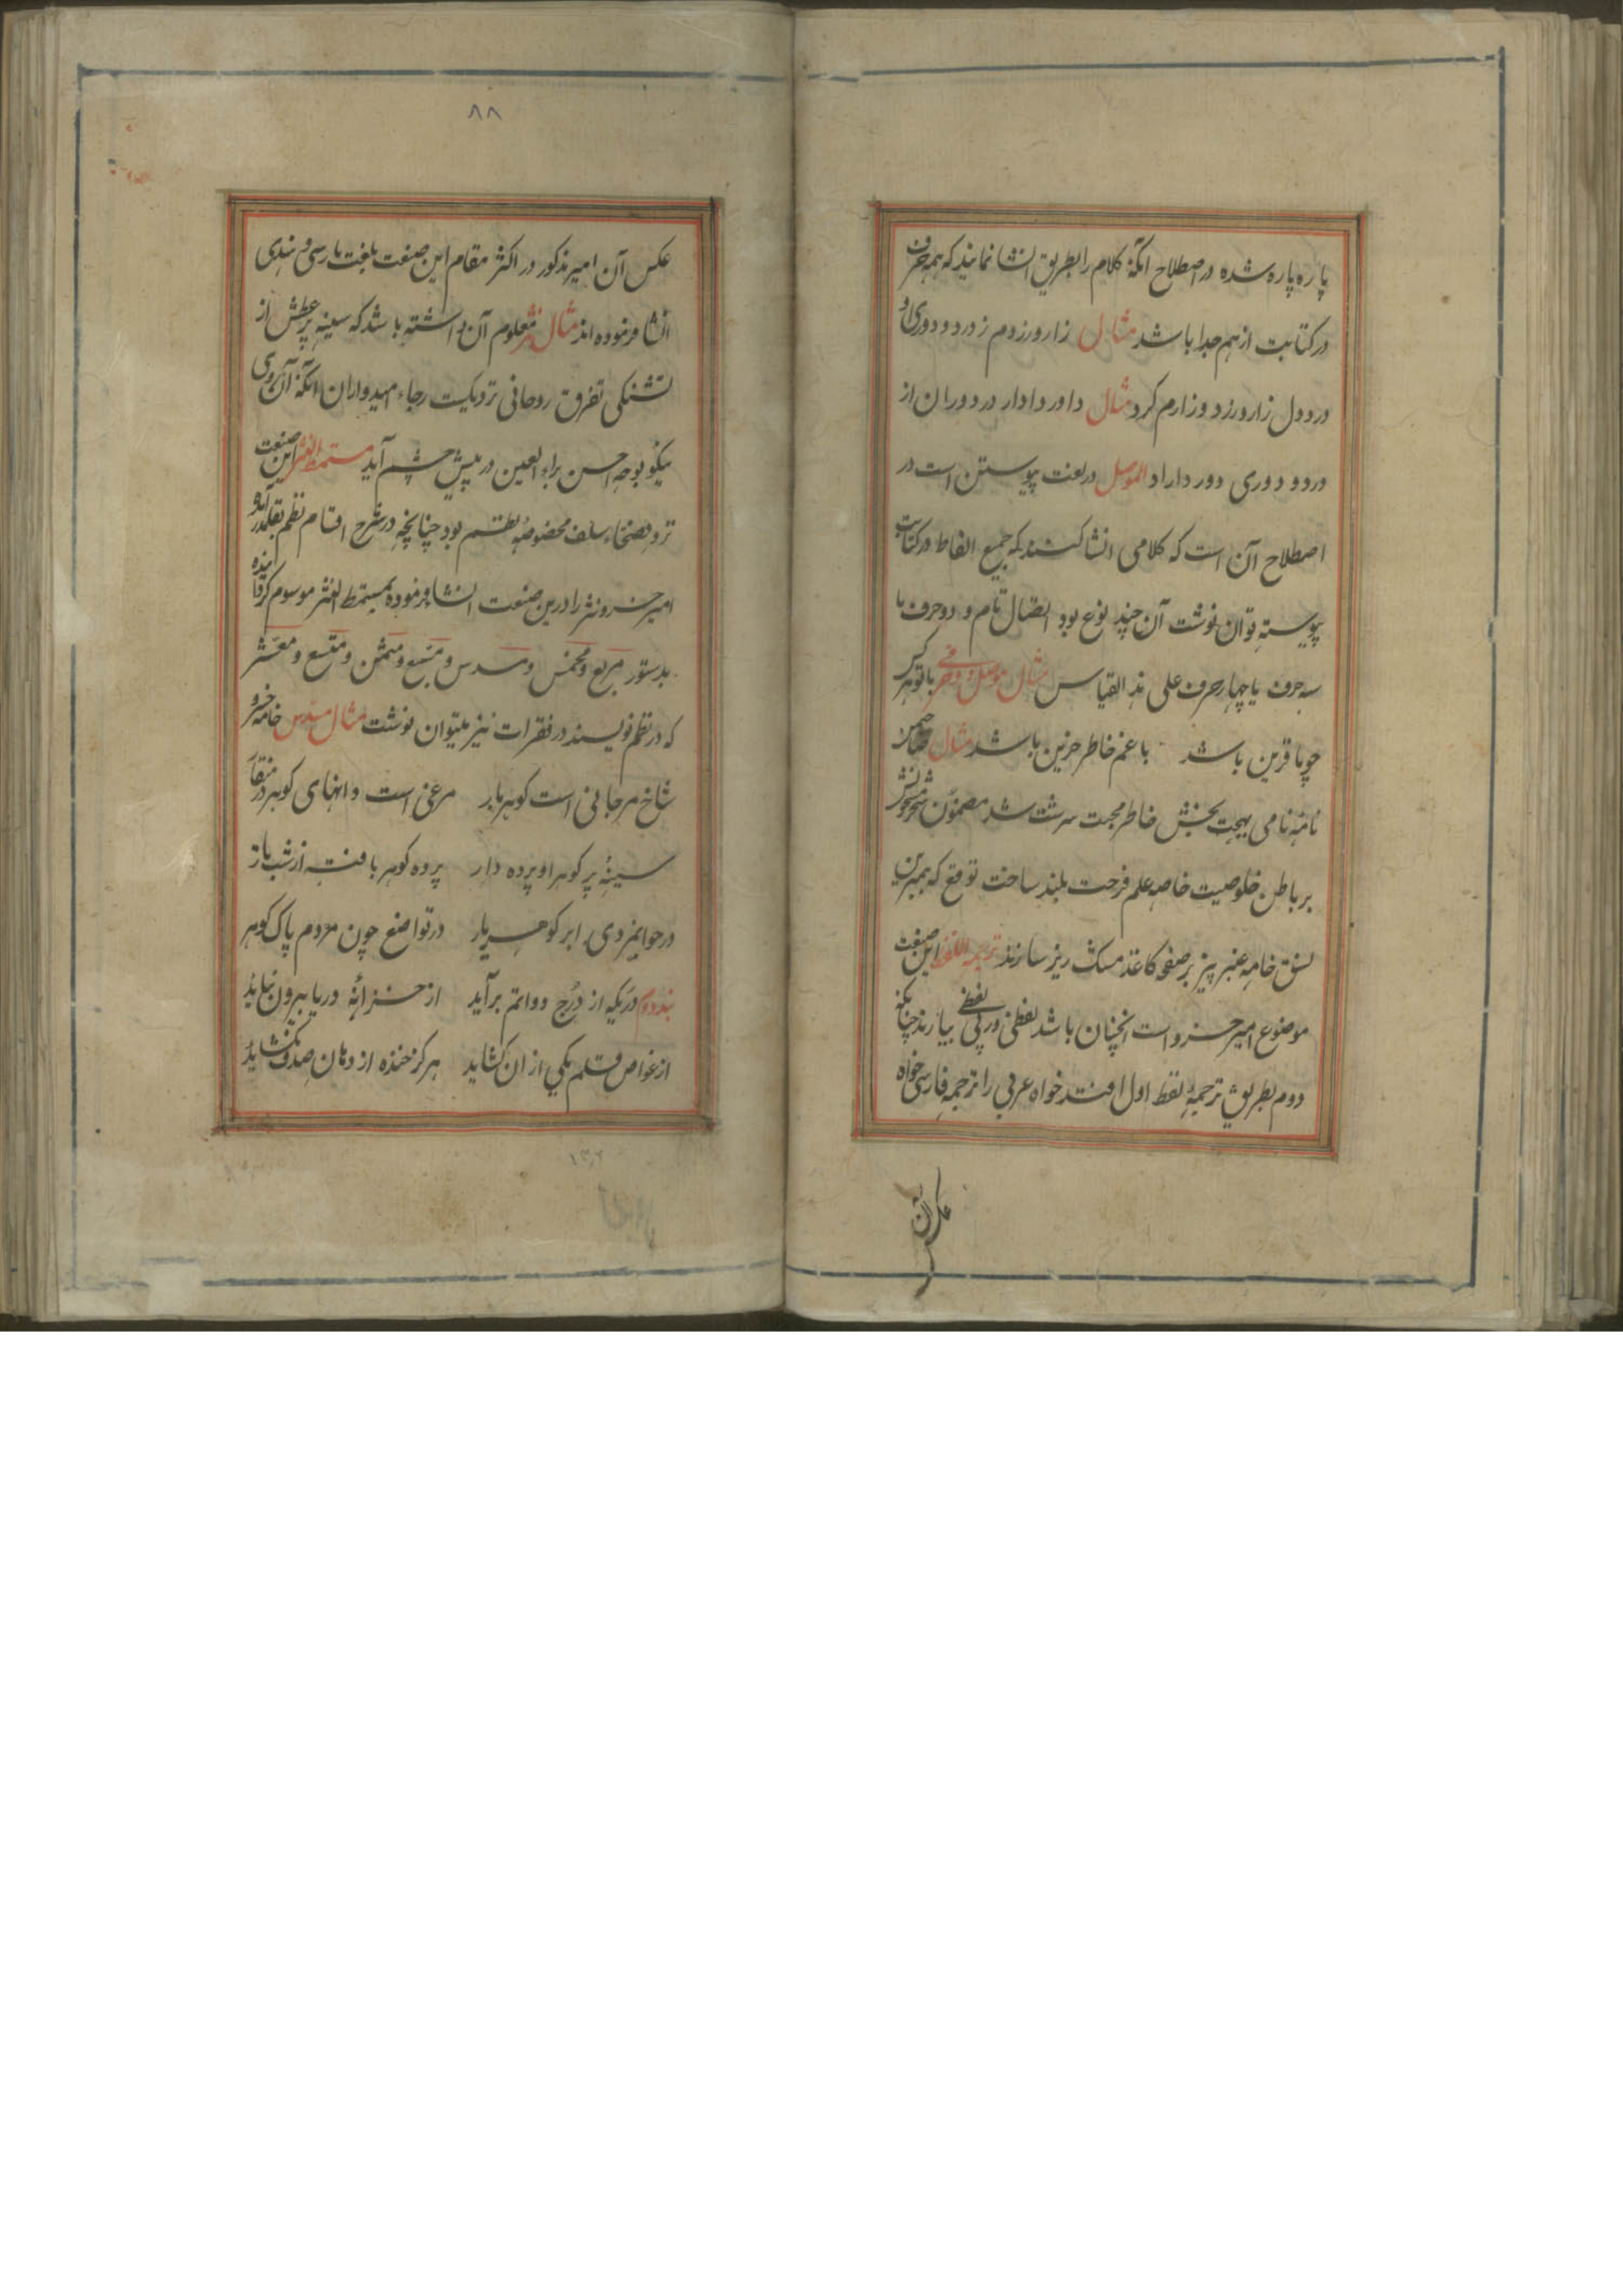 پاره پاره شده در اصطلاح آنکه کلام را بطریق انشا نمایند که همه حرف
در کتابت از هم جدا باشد مثال زار و رزوم ز درد و دوری او
درد دل زار و رزد و زارم کرد مثال داور دادار در دوران از
درد و دوری دور داراد الموصل در لغت پیوستن است در
اصطلاح آن است که کلامی انشا کنند که جمیع الفاظ در کتابت
پیوسته توان نوشت آن چند نوع بود اتصال تام و دو حرف یا
سه حرف یا چهار حرف علی هذا القیاس مثال موصل دو حرفی با تو هر کس
چو ما قرین باشد با غم خاطر حزین باشد مثال
نامه نامی بهجت بخش خاطر محبت سرشت شد مضمون
بر باطن خلوصیت خاصه علم فرحت بلند ساخت توقع که همبرین
نسق خامه عنبر بیز بر صفحه کاغذ مشک ریز سازند ترجمة اللفظ این صنعت
موضوع امیر خسرو است آنچنان باشد لفظی در پی لفظی بیارند چنانکه
دوم بطریق ترجمه لفظ اول افتد خواه عربی را ترجمه فارسی خواه
عکس آن
۸۸
عکس آن امیر مذکور در اکثر مقام این صنعت بلغت پارسی و هندی
انشا فرموده اند مثال نثر معلوم آن داشته باشد که سینه پر عطش از
تشنکی تفرق روحانی نزدیکست رجاء امیدواران آنکه آن روی
نیکو بوجه احسن براء العین در پیش چشم آید مستمط النثر این صنعت
نزد فصحاء سلف مخصوصه بنظم بود چنانچه در شرح اقسام نظم بقلم در آمده
امیر خسرو نثر را درین صنعت انشا فرموده بمستمط النثر موسوم کرد
بدستور مربع و مخمس و مسدس و مسبع و مثمن و متسع و معشر
که در نظم نویسند در فقرات نیز میتوان نوشت مثال مسدس خامه خسرو
شاخ مرجانی است کوهر بار مرغی است و انهای کوهر در منقار
سینه پر کوهر او پرده دار پرده کوهر بافته از شب تار
در جوانمردی ابر کوهر بار در تواضع چون مردم پاک کوهر
بند دوم دریکه از درج دواتم برآید از خزانه دریا بیرون نیاید
از غواص قلم یکی از ان کشاید هرکز خنده از دهان صدف نکشاید
۱۳۲